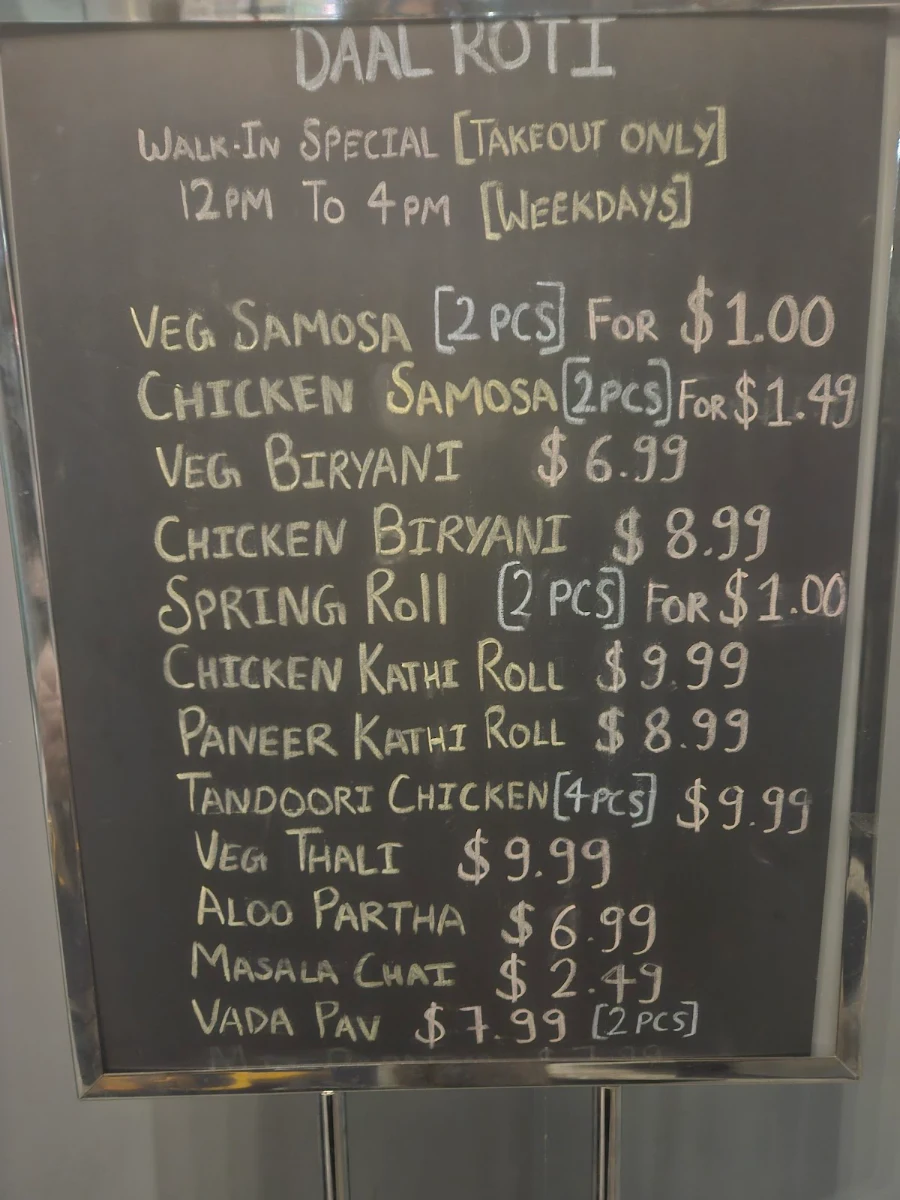 DAAL ROTI
WALK-IN SPECIAL [TAKEOUT ONLY]
12PM TO 4PM [WEEKDAYS]
VEG SAMOSA [2PCS] FOR $1.00
CHICKEN SAMOSA [2PCS] FOR $1.49
VEG BIRYANI $6.99
CHICKEN BIRYANI $8.99
SPRING Roll [2 PCS] FOR $1.00
CHICKEN KATHI ROLL $9.99
PANEER KATHI ROLL $8.99
TANDOORI CHICKEN [4PCS] $9.99
VEG THALI $9.99
ALOO PARTHA $6.99
MASALA CHAI $2.49
VADA PAV $7.99 [2PCS]